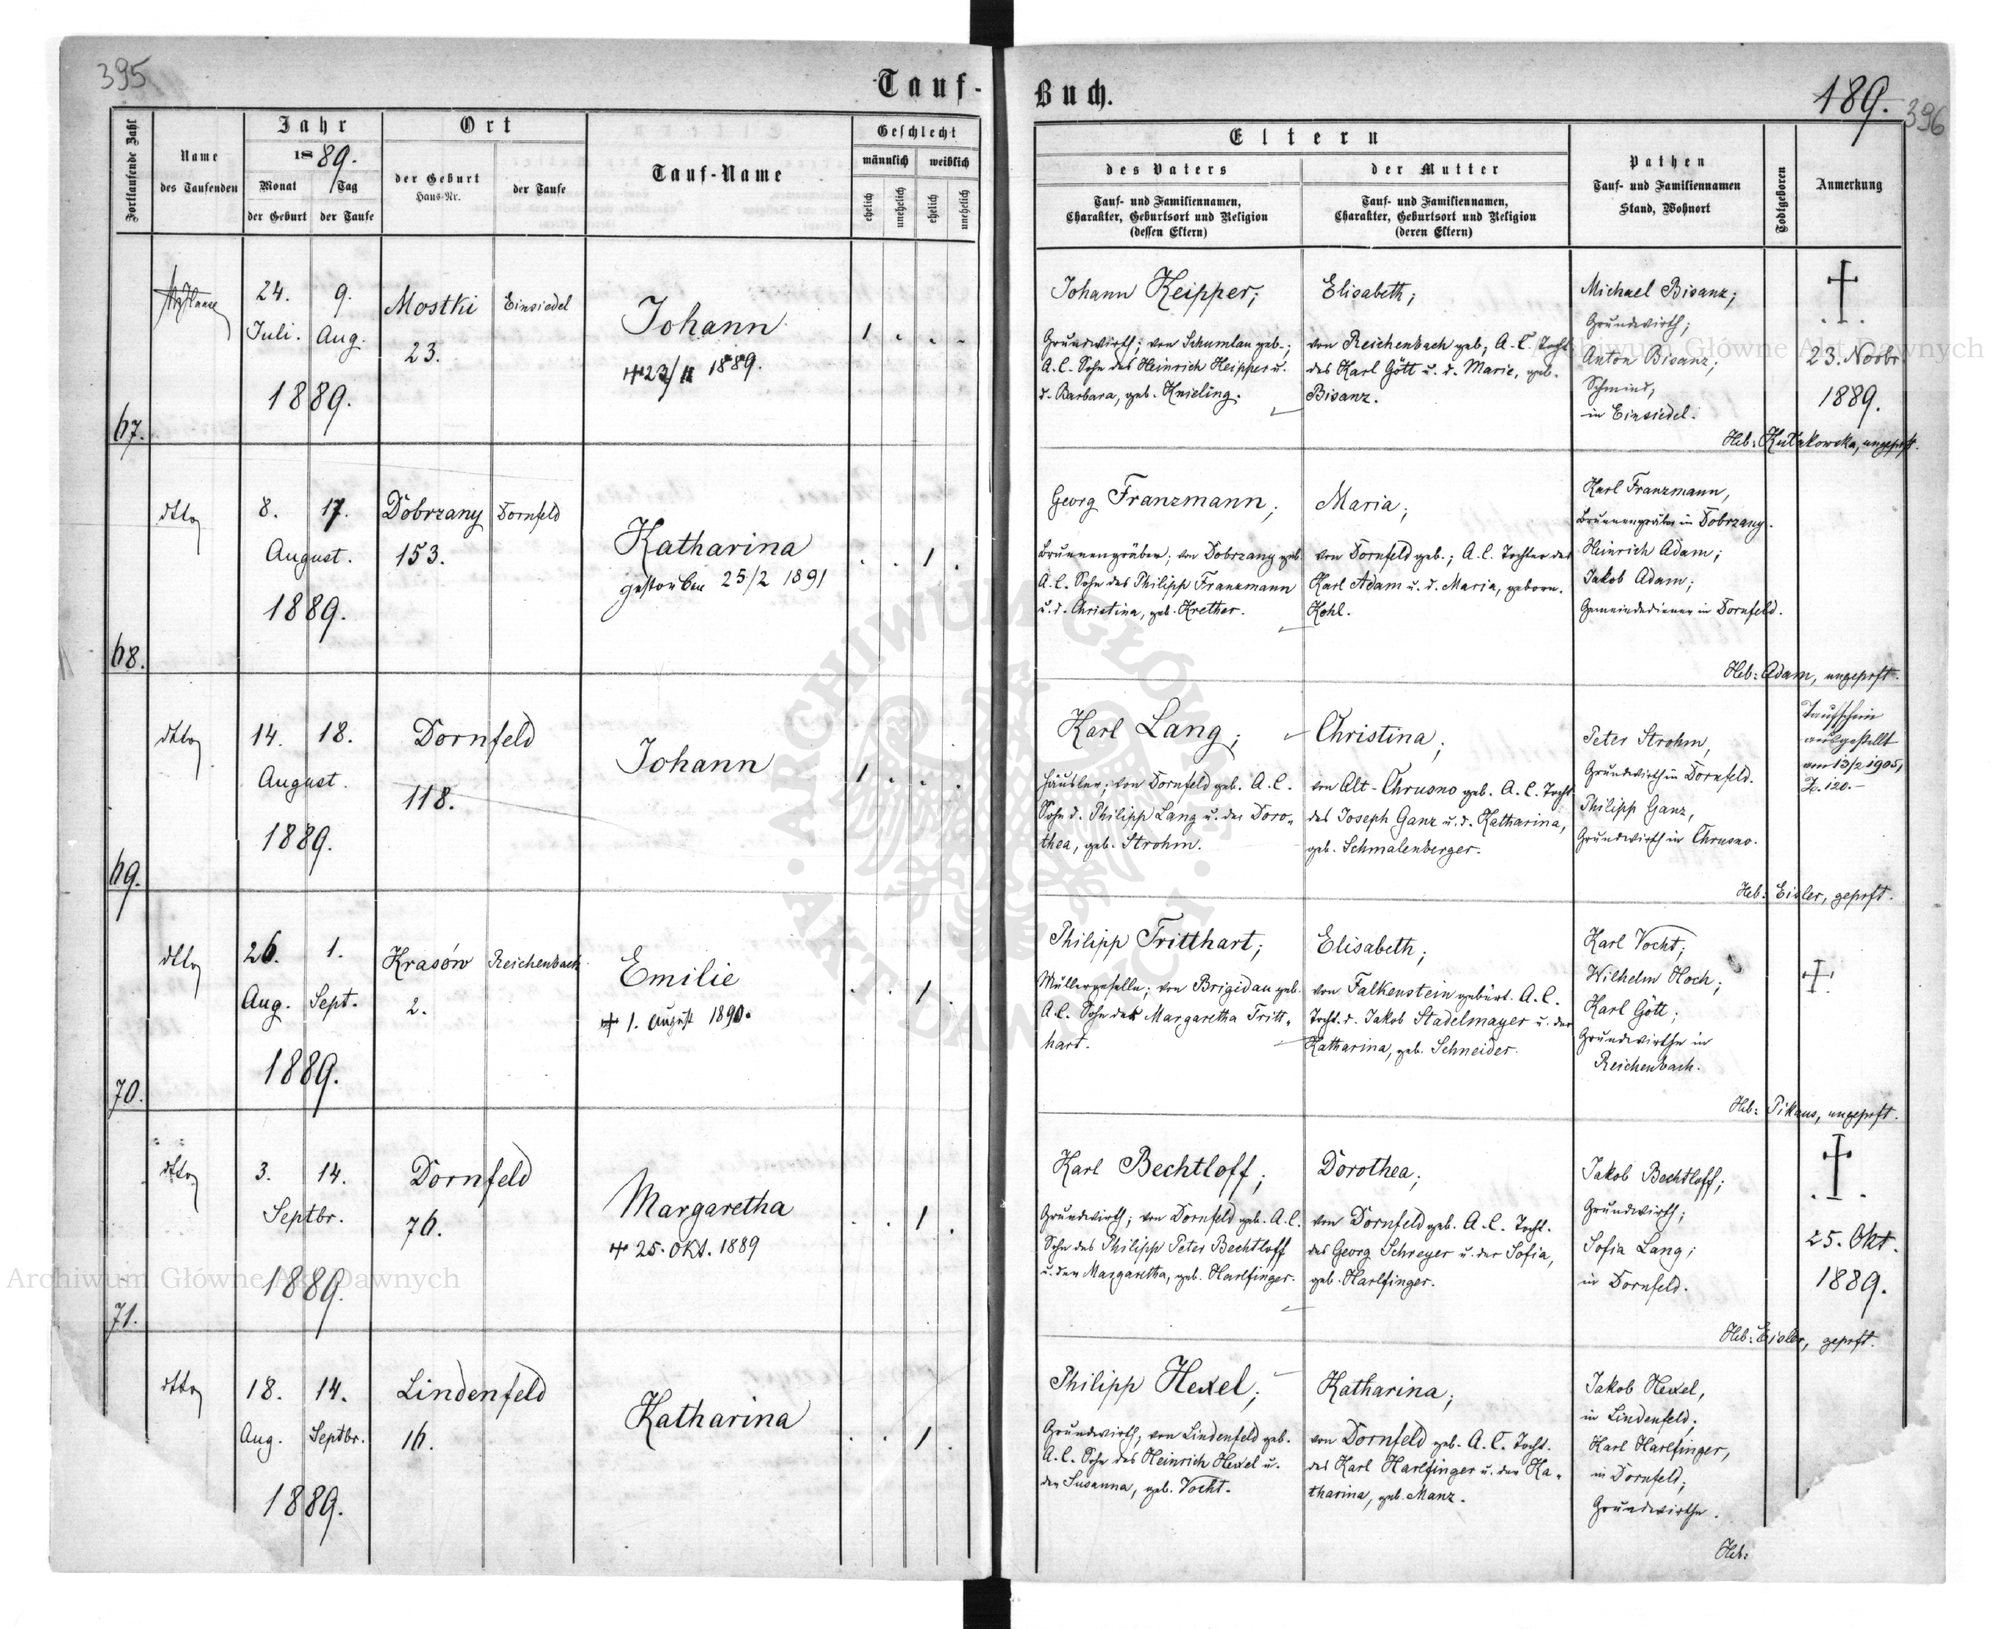 395
Tauf-
Buch.
189.
396
Fortlaufende Zahl
Name
des Taufenden
Jahr
1889.
Monat
Tag
der Geburt
der Taufe
Ort
der Geburt
Haus-Nr.
der Taufe
Tauf-Name
Geschlecht
männlich
weiblich
ehelich
unehelich
ehelich
unehelich
Eltern
des Vaters
Tauf- und Familiennamen,
Charakter, Geburtsort und Religion
(dessen Eltern)
der Mutter
Tauf- und Familiennamen,
Charakter, Geburtsort und Religion
(deren Eltern)
Pathen
Tauf- und Familiennamen
Stand, Wohnort
Todtgeboren
Anmerkung
67.
24.
Juli.
9.
Aug.
1889.
Mostki
23.
Einsiedel
Johann
1889.
1
Johann Keipper;
Grundwirth; von Schumlau geb.;
A.C. Sohn des Heinrich Keipper u.
d. Barbara, geb. Knieling.
Elisabeth;
von Reichenbach geb; A.C. Tocht
des Karl Gött u. d. Marie, geb.
Bisanz.
Michael Bisanz;
Grundwirth;
Anton Bisanz;
Schmied,
in Einsiedel.
†
23. Novbr
1889.
Heb: Kułakowska, ungeprft.
68.
dtto
8.
17.
August.
1889.
Dobrzany
153.
Dornfeld
Katharina
gestorben 25/2 1891
1
Georg Franzmann;
Brunnengräber; von Dobrzany geb.
A.C. Sohn des Philipp Franzmann
u. d. Christina, geb. Krether.
Maria;
von Dornfeld geb.; A.C. Tochter des
Karl Adam u. d. Maria, geborn.
Kohl.
Karl Franzmann,
Brunnengräber in Dobrzany.
Heinrich Adam;
Jakob Adam;
Gemeindediener in Dornfeld.
Heb: Adam, ungeprft.
69.
dtto
14.
18.
August.
1889.
Dornfeld
118.
Johann
1
Karl Lang;
Häusler; von Dornfeld geb. A.C.
Sohn d. Philipp Lang u. der Doro-
thea, geb. Strohm.
Christina;
von Alt-Chrusno geb. A.C. Tocht.
des Joseph Ganz u. d. Katharina,
geb. Schmalenberger.
Peter Strohm,
Grundwirth in Dornfeld.
Philipp Ganz,
Grundwirth in Chrusno.
Taufschein
ausgestellt
am 13/2 1905,
Z. 120.-
Heb: Eisler, geprft.
70.
dtto
26.
Aug.
1.
Sept.
1889.
Krasów
2.
Reichenbach
Emilie
† 1. August 1890.
1
Philipp Tritthart;
Müllergeselle; von Brigidau geb.
A.C. Sohn der Margaretha Tritt-
hart.
Elisabeth;
von Falkenstein gebürt. A.C.
Tocht. d. Jakob Stadelmayer u. der
Katharina, geb. Schneider.
Karl Vocht;
Wilhelm Hoch;
Karl Gött;
Grundwirthe in
Reichenbach.
†
Heb: Pikaus, ungeprft.
71.
dtto
3.
14.
Septbr.
1889.
Dornfeld
76.
Margaretha
† 25. Okt. 1889
1
Karl Bechtloff;
Grundwirth; von Dornfeld geb. A.C.
Sohn des Philipp Peter Bechtloff
u. der Margaretha, geb. Harlfinger.
Dorothea;
von Dornfeld geb. A.C. Tocht.
des Georg Schreyer u. der Sofia,
geb. Harlfinger.
Jakob Bechtloff;
Grundwirth;
Sofia Lang;
in Dornfeld.
†
25. Okt.
1889.
Heb: Eisler, geprft.
dtto
18.
Aug.
14.
Septbr.
1889.
Lindenfeld
16.
Katharina
1
Philipp Hexel;
Grundwirth, von Lindenfeld geb.
A.C. Sohn des Heinrich Hexel u.
der Susanna, geb. Vocht.
Katharina;
von Dornfeld geb. A.C. Tocht.
des Karl Harlfinger u. der Ka-
tharina, geb. Manz.
Jakob Hexel,
in Lindenfeld;
Karl Harlfinger,
in Dornfeld;
Grundwirthe.
Heb:
Archiwum Główne Akt Dawnych
Archiwum Główne Akt Dawnych
ARCHIWUM GŁÓWNE
AKT DAWNYCH